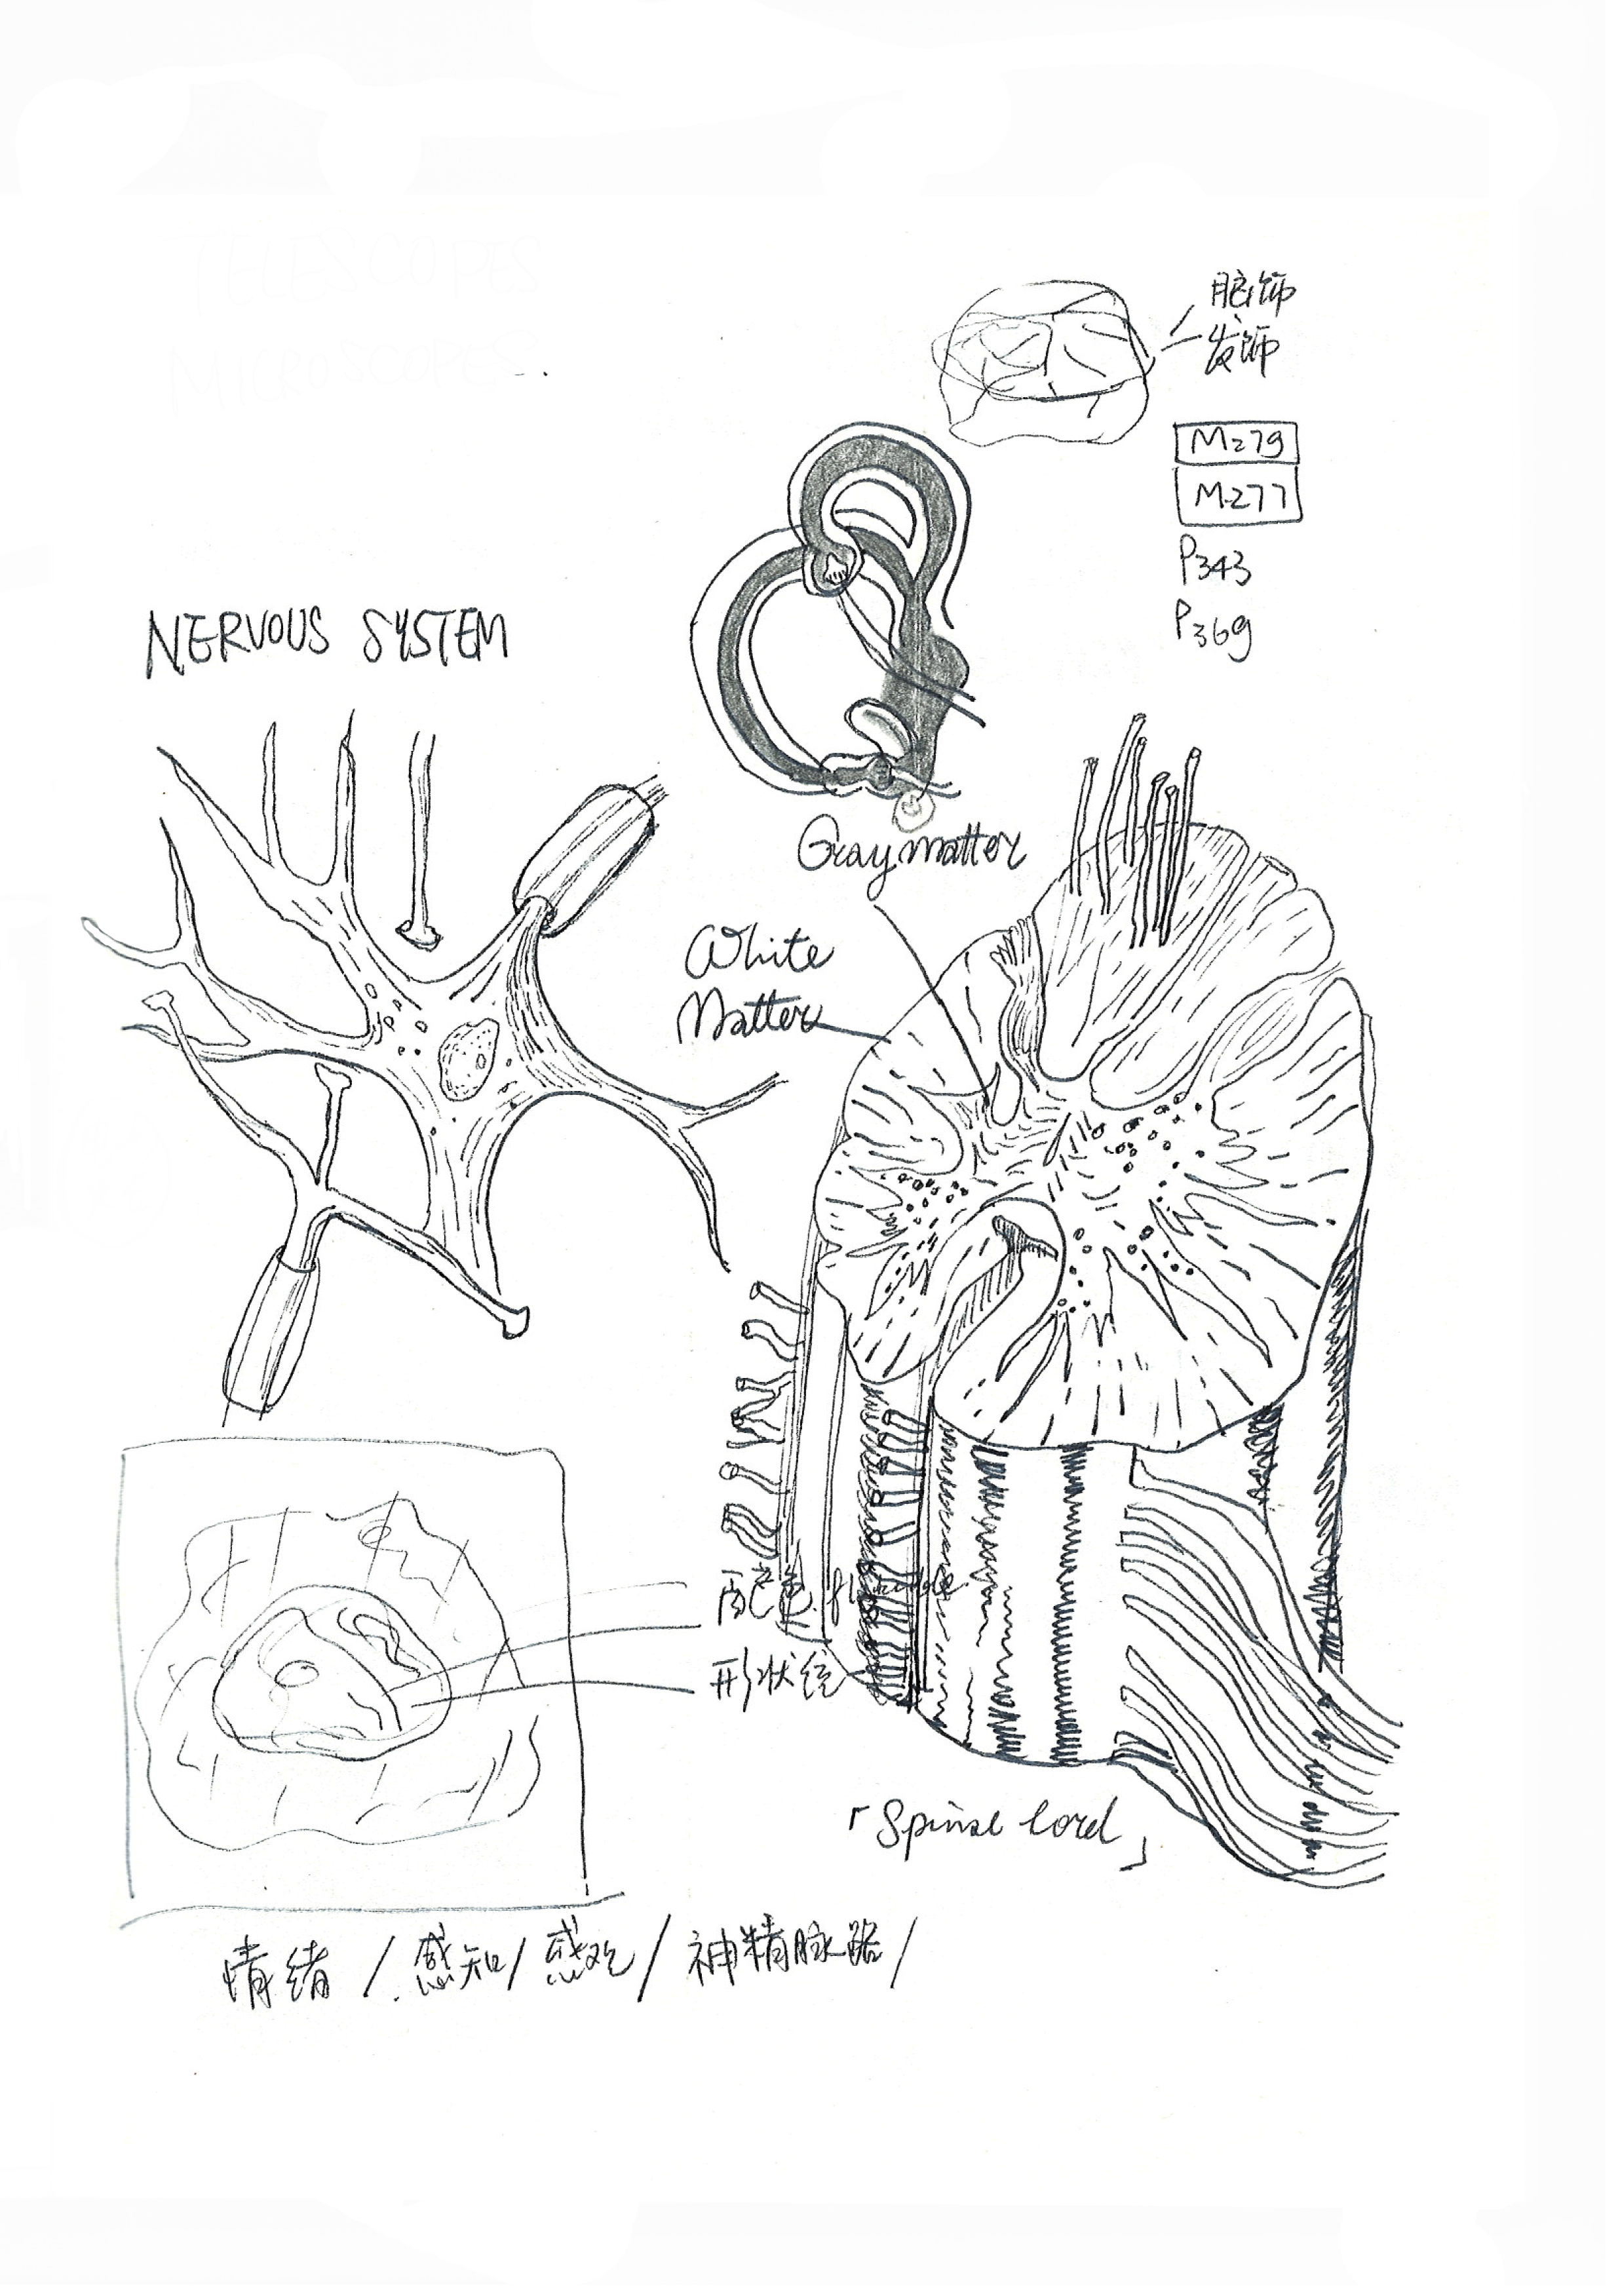 TELESCOPES
MICROSCOPES
服饰
发饰
M279
M277
P343
P369
NERVOUS SYSTEM
Gray matter
White
Matter
配色
形状
「Spinal Cord」
情绪 / 感知 / 感观 / 神精脉路 /